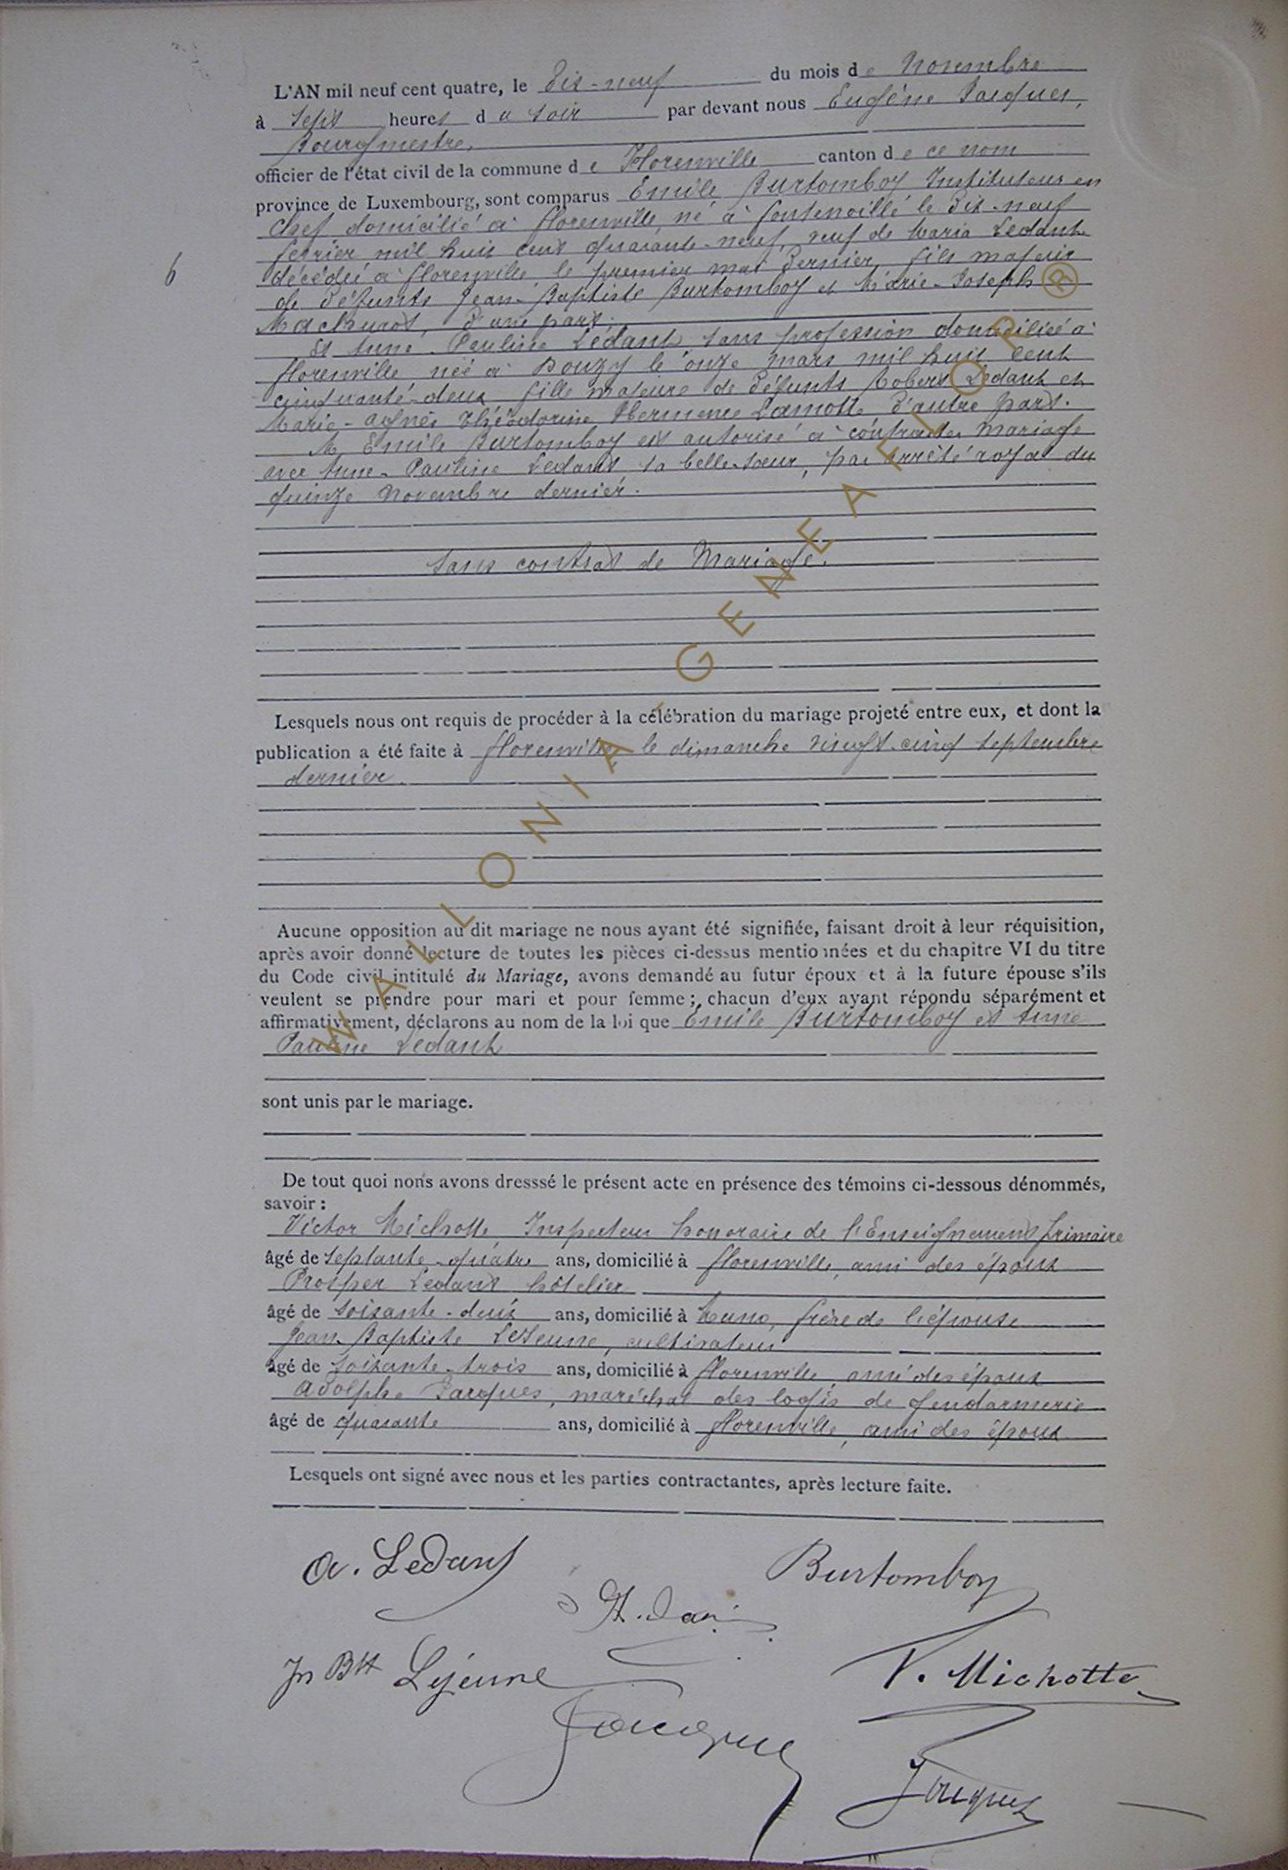 L'AN mil neuf cent quatre, le Dix-neuf du mois de Novembre
à sept heures du soir par devant nous Eugène Jacques,
Bourgmestre,
officier de l'état civil de la commune de Florenville canton de ce nom
province de Luxembourg, sont comparus Emile Burtomboy Instituteur en
chef domicilié à Florenville, né à Fontenoille le dix-neuf
février mil huit cent quarante-neuf, veuf de Maria Ledant
décédée à Florenville le premier mai dernier, fils majeur
de défunts Jean-Baptiste Burtomboy et Marie-Joseph
d'une part.
Et Pauline Ledant sans profession domiciliée à
Florenville née à Douzy le onze mars mil huit cent
cinquante-deux fille majeure de défunts Robert Ledant et
Marie-Agnès Théodorine Hermence Lamotte d'autre part.
M Emile Burtomboy est autorisé à contracter mariage
avec Pauline Ledant sa belle-sœur, par arrêté royal du
quinze novembre dernier.
Sans contrat de Mariage.
Lesquels nous ont requis de procéder à la célébration du mariage projeté entre eux, et dont la
publication a été faite à Florenville le dimanche vingt-cinq septembre
dernier.
Aucune opposition au dit mariage ne nous ayant été signifiée, faisant droit à leur réquisition,
après avoir donné lecture de toutes les pièces ci-dessus mentionnées et du chapitre VI du titre
du Code civil intitulé du Mariage, avons demandé au futur époux et à la future épouse s'ils
veulent se prendre pour mari et pour femme ; chacun d'eux ayant répondu séparément et
affirmativement, déclarons au nom de la loi que Emile Burtomboy et
Pauline Ledant
sont unis par le mariage.
De tout quoi nons avons dresssé le présent acte en présence des témoins ci-dessous dénommés,
savoir :
Victor Michotte Inspecteur honoraire de l'Enseignement primaire
âgé de septante-quatre ans, domicilié à Florenville, ami des époux
Prosper Ledant hôtelier
âgé de soixante-deux ans, domicilié à Muno, frère de l'épouse
Jean-Baptiste Lejeune, cultivateur
âgé de soixante-trois ans, domicilié à Florenville, ami des époux
Adolphe Jacques, maréchal des logis de gendarmerie
âgé de quarante ans, domicilié à Florenville, ami des époux
Lesquels ont signé avec nous et les parties contractantes, après lecture faite.
a. Ledant Burtomboy
Jn Btt Lejeune V. Michotte
Jacques
Jacques
6
WALLONIA GENEALOR ®